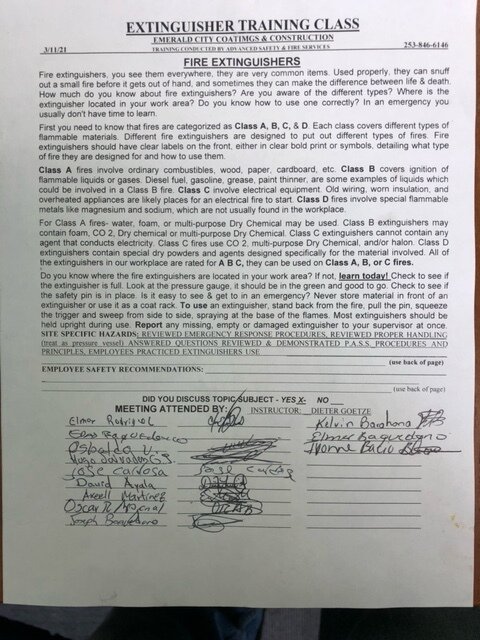 EXTINGUISHER TRAINING CLASS
EMERALD CITY COATINGS & CONSTRUCTION
3/11/21 TRAINING CONDUCTED BY ADVANCED SAFETY & FIRE SERVICES 253-846-6146
FIRE EXTINGUISHERS
Fire extinguishers, you see them everywhere, they are very common items. Used properly, they can snuff
out a small fire before it gets out of hand, and sometimes they can make the difference between life & death.
How much do you know about fire extinguishers? Are you aware of the different types? Where is the
extinguisher located in your work area? Do you know how to use one correctly? In an emergency you usually
don't have time to learn.
First you need to know that fires are categorized as Class A, B, C, & D. Each class covers different types of
flammable materials. Different fire extinguishers are designed to put out different types of fires. Fire
extinguishers should have clear labels on the front, either in clear bold print or symbols, detailing what
type of fire they are designed for and how to use them.
Class A fires involve ordinary combustibles, wood, paper, cardboard, etc. Class B covers ignition of
flammable liquids or gases. Diesel fuel, gasoline, grease, paint thinner, are some examples of liquids which
could be involved in a Class B fire. Class C involve electrical equipment. Old wiring, worn insulation, and
overheated appliances are likely places for an electrical fire to start. Class D fires involve special flammable
metals like magnesium and sodium, which are not usually found in the workplace.
For Class A fires- water, foam, or multi-purpose Dry Chemical may be used. Class B extinguishers may
contain foam, CO 2, Dry chemical or multi-purpose Dry Chemical. Class C extinguishers cannot contain any
agent that conducts electricity. Class C fires use CO 2, multi-purpose Dry Chemical, and/or halon. Class D
extinguishers contain special dry powders and agents designed specifically for the material involved. All of
the extinguishers in our workplace are rated for A B C, they can be used on Class A, B, or C fires.
Do you know where the fire extinguishers are located in your work area? If not, learn today! Check to see if
the extinguisher is full. Look at the pressure gauge, it should be in the green and good to go. Check to see if
the safety pin is in place. Is it easy to see & get to in an emergency? Never store material in front of an
extinguisher or use it as a coat rack. To use an extinguisher, stand back from the fire, pull the pin, squeeze
the trigger and sweep from side to side, spraying at the base of the flames. Most extinguishers should be
held upright during use. Report any missing, empty or damaged extinguisher to your supervisor at once.
SITE SPECIFIC HAZARDS; REVIEWED EMERGENCY RESPONSE PROCEDURES, REVIEWED PROPER HANDLING
(treat as pressure vessel) ANSWERED QUESTIONS REVIEWED & DEMONSTRATED P.A.S.S. PROCEDURES AND
PRINCIPLES, EMPLOYEES PRACTICED EXTINGUISHERS USE
(use back of page)
EMPLOYEE SAFETY RECOMMENDATIONS:
(use back of page)
DID YOU DISCUSS TOPIC/SUBJECT - YES X- NO
MEETING ATTENDED BY: INSTRUCTOR: DIETER GOETZE
Elmer Rodriguez Kelvin Barahona
Elmer Baquedano
Osbaldo V. Ivonne
Jose Cardosa Jose
David Ayala
Axcell Martinez
Oscar R.
Joseph